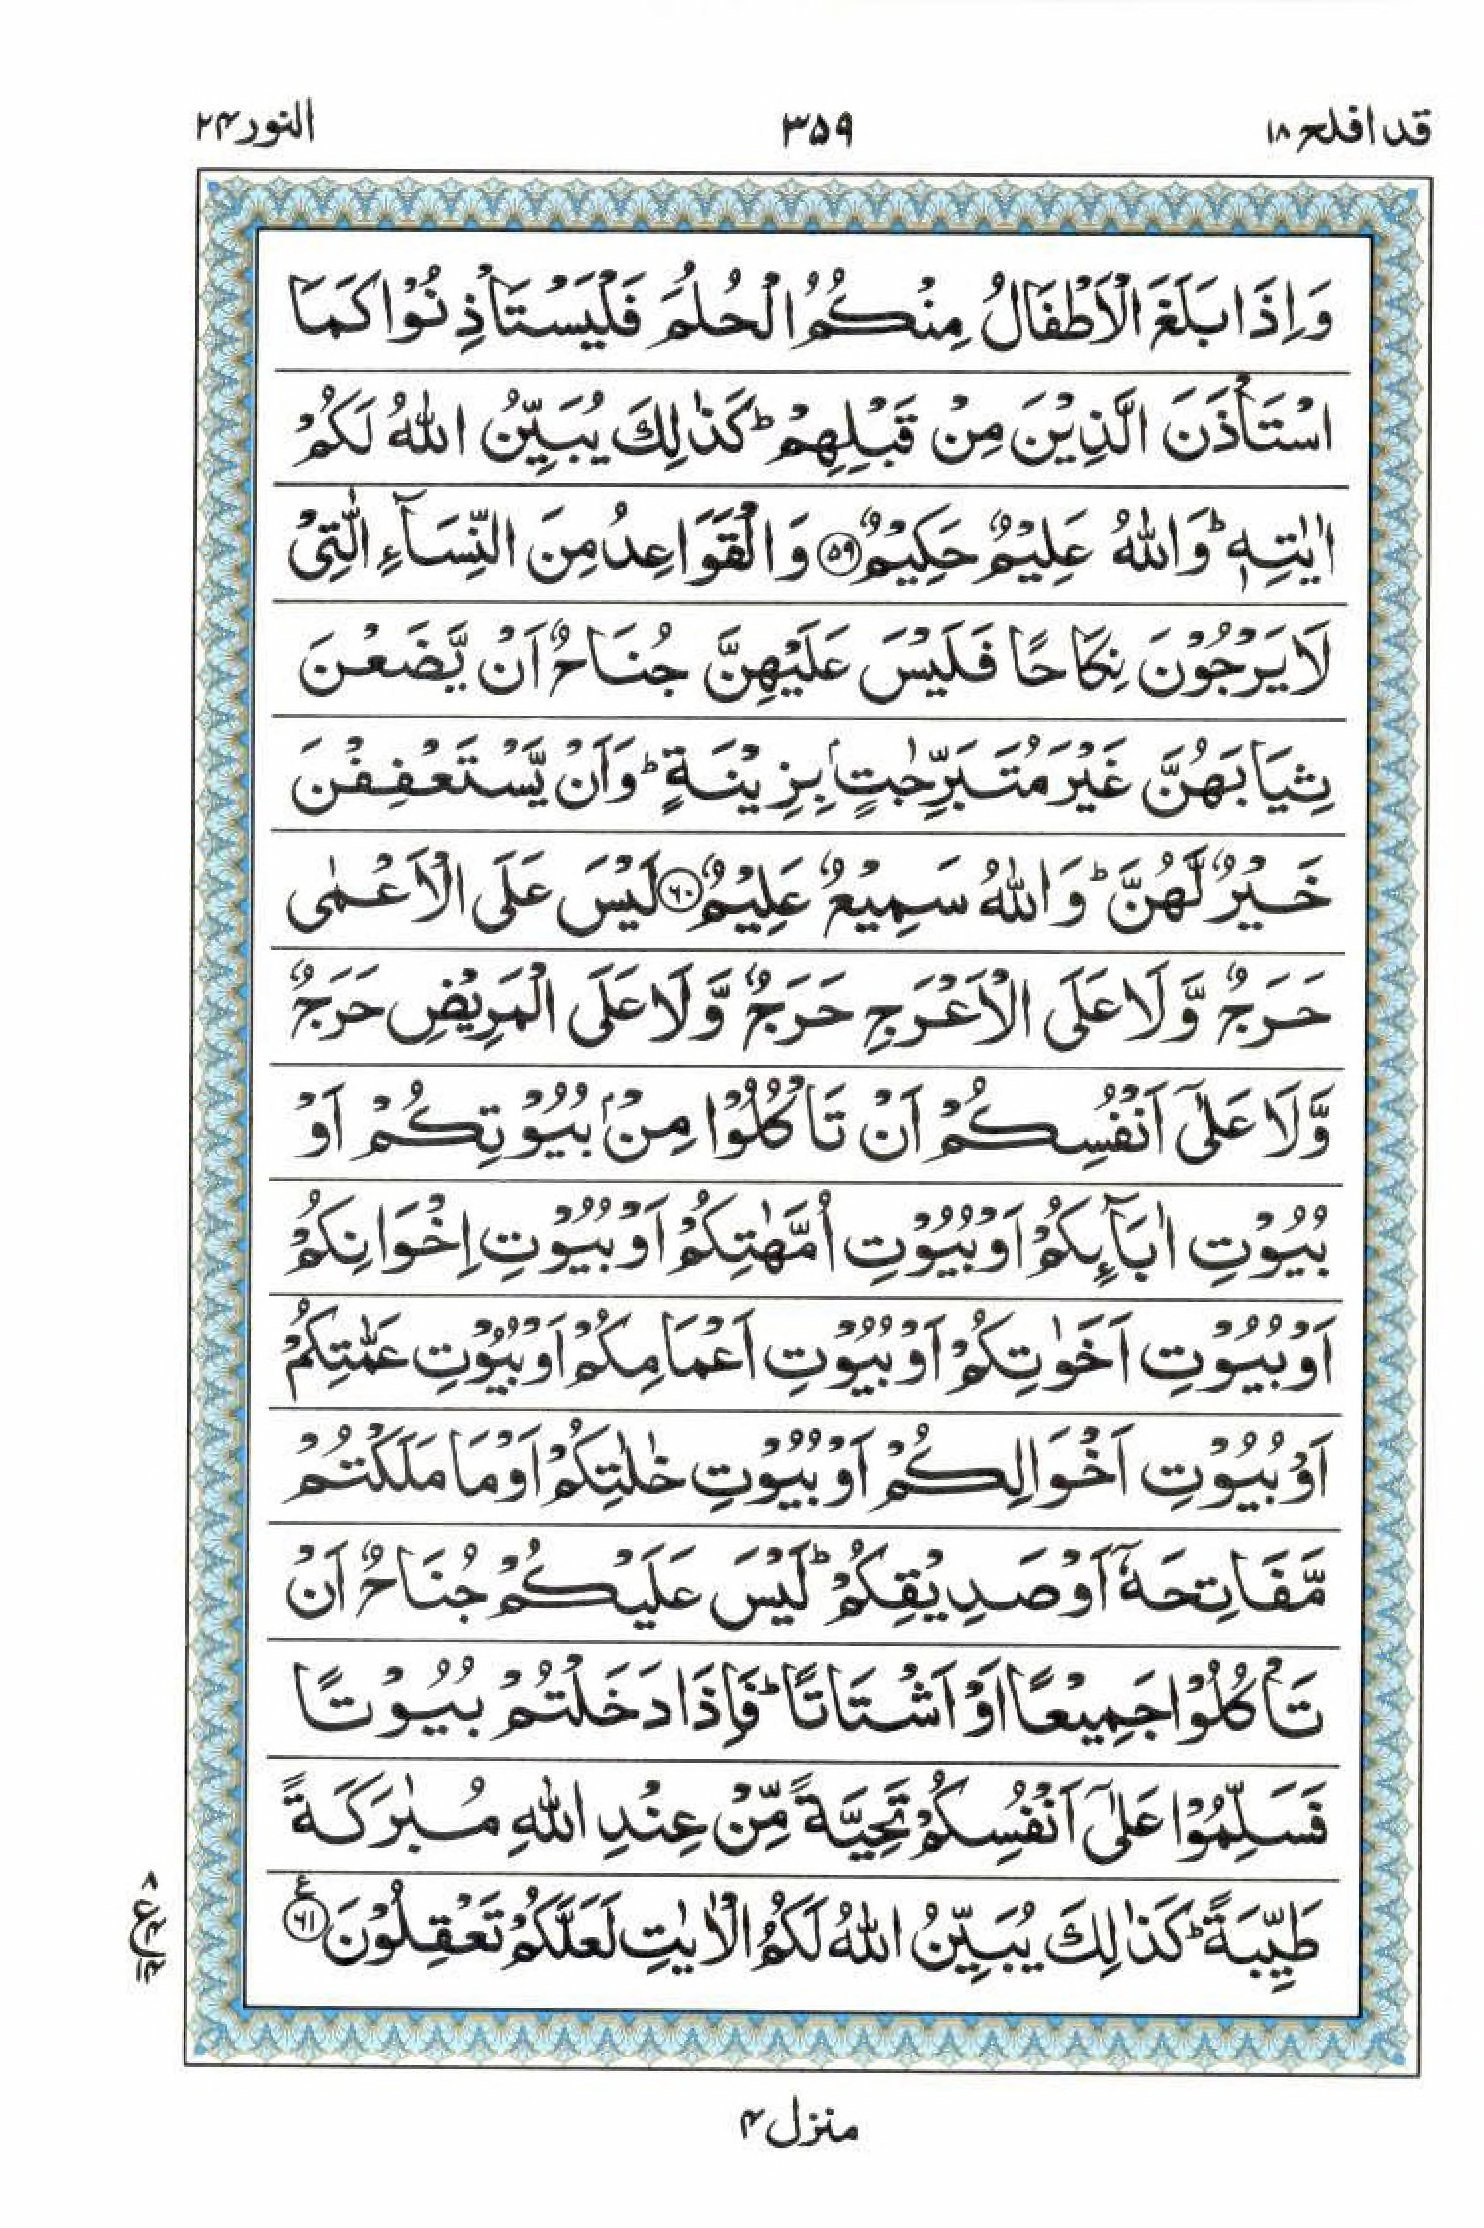 قد افلح ۱۸ ۳۵۹ النور ۲۴
وَاِذَا بَلَغَ الْاَطْفَالُ مِنْكُمُ الْحُلُمَ فَلْيَسْتَاْذِنُوْا كَمَا
اسْتَاْذَنَ الَّذِيْنَ مِنْ قَبْلِهِمْ ؕ كَذٰلِكَ يُبَيِّنُ اللّٰهُ لَكُمْ
اٰيٰتِهٖ ؕ وَاللّٰهُ عَلِيْمٌ حَكِيْمٌ ﴿۵۹﴾ وَالْقَوَاعِدُ مِنَ النِّسَآءِ الّٰتِيْ
لَا يَرْجُوْنَ نِكَاحًا فَلَيْسَ عَلَيْهِنَّ جُنَاحٌ اَنْ يَّضَعْنَ
ثِيَابَهُنَّ غَيْرَ مُتَبَرِّجٰتٍۭ بِزِيْنَةٍ ؕ وَاَنْ يَّسْتَعْفِفْنَ
خَيْرٌ لَّهُنَّ ؕ وَاللّٰهُ سَمِيْعٌ عَلِيْمٌ ﴿۶۰﴾ لَيْسَ عَلَى الْاَعْمٰى
حَرَجٌ وَّلَا عَلَى الْاَعْرَجِ حَرَجٌ وَّلَا عَلَى الْمَرِيْضِ حَرَجٌ
وَّلَا عَلٰۤى اَنْفُسِكُمْ اَنْ تَاْكُلُوْا مِنْۢ بُيُوْتِكُمْ اَوْ
بُيُوْتِ اٰبَآئِكُمْ اَوْ بُيُوْتِ اُمَّهٰتِكُمْ اَوْ بُيُوْتِ اِخْوَانِكُمْ
اَوْ بُيُوْتِ اَخَوٰتِكُمْ اَوْ بُيُوْتِ اَعْمَامِكُمْ اَوْ بُيُوْتِ عَمّٰتِكُمْ
اَوْ بُيُوْتِ اَخْوَالِكُمْ اَوْ بُيُوْتِ خٰلٰتِكُمْ اَوْ مَا مَلَكْتُمْ
مَّفَاتِحَهٗۤ اَوْ صَدِيْقِكُمْ ؕ لَيْسَ عَلَيْكُمْ جُنَاحٌ اَنْ
تَاْكُلُوْا جَمِيْعًا اَوْ اَشْتَاتًا ؕ فَاِذَا دَخَلْتُمْ بُيُوْتًا
فَسَلِّمُوْا عَلٰۤى اَنْفُسِكُمْ تَحِيَّةً مِّنْ عِنْدِ اللّٰهِ مُبٰرَكَةً
طَيِّبَةً ؕ كَذٰلِكَ يُبَيِّنُ اللّٰهُ لَكُمُ الْاٰيٰتِ لَعَلَّكُمْ تَعْقِلُوْنَ ﴿۶۱﴾ ع
۸
ع ۴
۱۴
منزل ۴